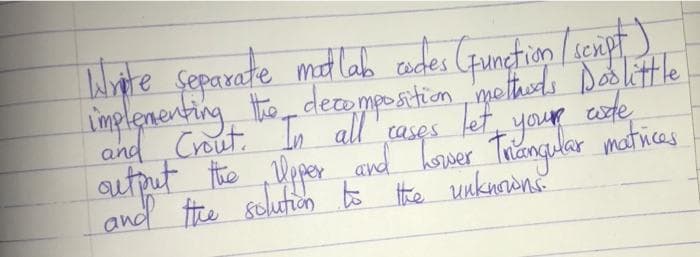 Write separate matlab codes (function/script)
implementing the decomposition methods Doolittle
and Crout. In all cases let your code
output the Upper and Lower Triangular matrices
and the solution to the unknowns.